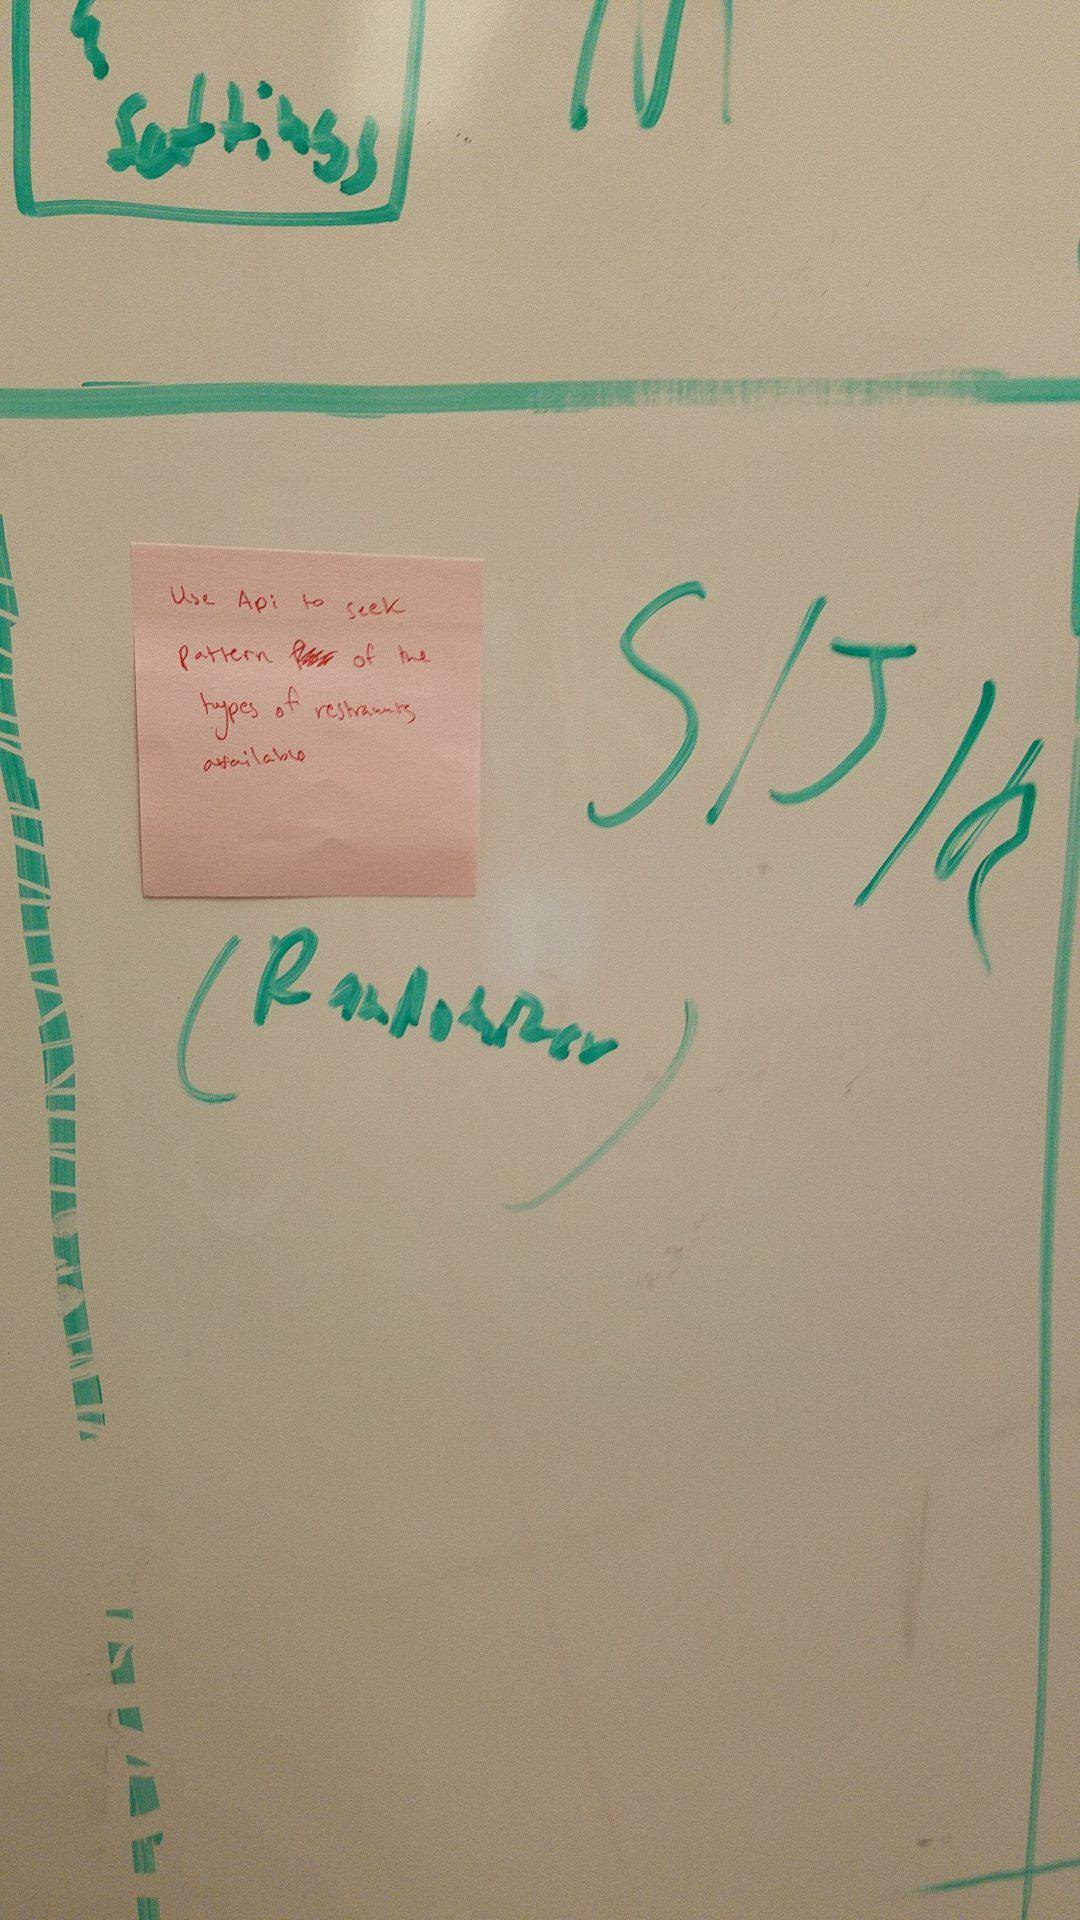 Settings
Use Api to seek
pattern of the
types of restraunts
available
S/J/A
(Randomizer)